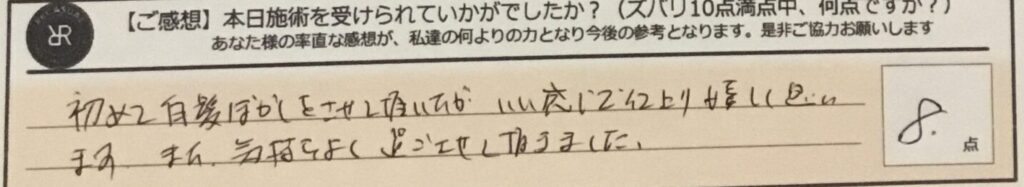 【ご感想】本日施術を受けられていかがでしたか？（ズバリ10点満点中、何点ですか？）
あなた様の率直な感想が、私達の何よりの力となり今後の参考となります。是非ご協力お願いします
初めて白髪ぼかしをさせて頂いたが いい感じで仕上り嬉しく思い
ます また、気持ちよく過ごせして頂きました。
8.
点